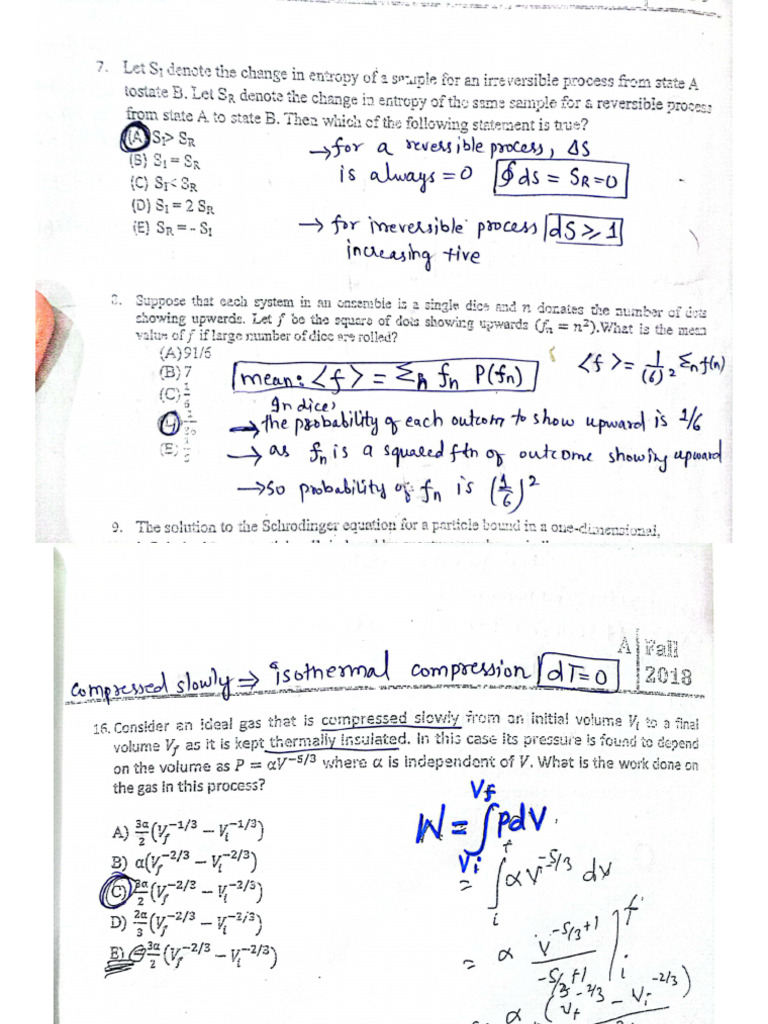 7. Let S₁ denote the change in entropy of a sample for an irreversible process from state A
tostate B. Let S_R denote the change in entropy of the same sample for a reversible process
from state A to state B. Then which of the following statement is true?
(A) S₁> S_R
(B) S₁ = S_R
(C) S₁< S_R
(D) S₁ = 2 S_R
(E) S_R = - S₁
→for a reversible process, ΔS
is always = 0 ∮ds = S_R = 0
→ for irreversible process dS ⩾ 1
increasing +ive
8. Suppose that each system in an ensemble is a single dice and n donates the number of dots
showing upwards. Let f be the square of dots showing upwards (fₙ = n²).What is the mean
value of f if large number of dice are rolled?
(A)91/6
(B) 7
(C)
(E)
mean: <f> = Σₙ fₙ P(fₙ)
<f> = 1/(6)² Σn f(n)
In dice,
→the probability of each outcom to show upward is 1/6
→ as fₙ is a squared ftn of outcome showing upward
→so probability of fₙ is (1/6)²
9. The solution to the Schrodinger equation for a particle bound in a one-dimensional,
A Fall
2018
compressed slowly ⇒ isothermal compression dT=0
16. Consider an ideal gas that is compressed slowly from an initial volume Vᵢ to a final
volume V_f as it is kept thermally insulated. In this case its pressure is found to depend
on the volume as P = αV^{-5/3} where α is independent of V. What is the work done on
the gas in this process?
A) 3α/2 (V_f^{-1/3} − V_i^{-1/3})
B) α(V_f^{-2/3} − V_i^{-2/3})
C) 3α/2 (V_f^{-2/3} − V_i^{-2/3})
D) 2α/3 (V_f^{-2/3} − V_i^{-2/3})
E) −3α/2 (V_f^{-2/3} − V_i^{-2/3})
W = ∫_{Vi}^{Vf} PdV
= ∫_i^f αV^{-5/3} dv
= α V^{-5/3+1} / -5/3+1 |_i^f
= α (V_f^{-2/3} − V_i^{-2/3})